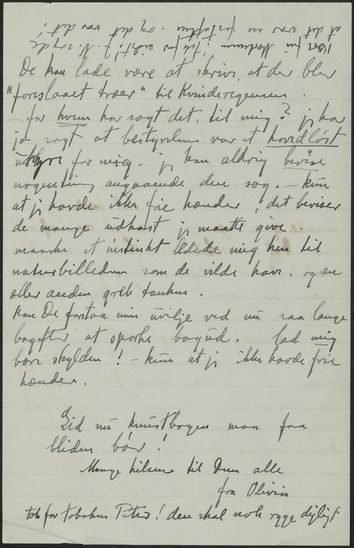 De kan lade være at skrive, at der blev
"foreslaaet træer" til Kvinderegensen.
– for hvem har sagt det, til mig? jeg har
jo sagt at bestyrelsen var et hovedløst
uhyre for mig. jeg kan aldrig bevise
nogenting angaaende den sag. – kun
at jeg havde ikke frie hænder, det beviser
de mange udkast jeg maatte give.
maaske et instinkt ledede mig hen til
naturbilleder som de vilde have, og en
eller anden greb tanken.
Kan De forstaa min uvilje ved nu saa lange
bagefter at sparke bagud. lad mig
bære skylden! – kun at jeg ikke havde frie
hænder.
Gid nu kunstbogen maa faa
bliden bør!
Mange hilsner til Dem alle
fra Olivia
tak for tobaken Peter! den skal nok ryge dejligt